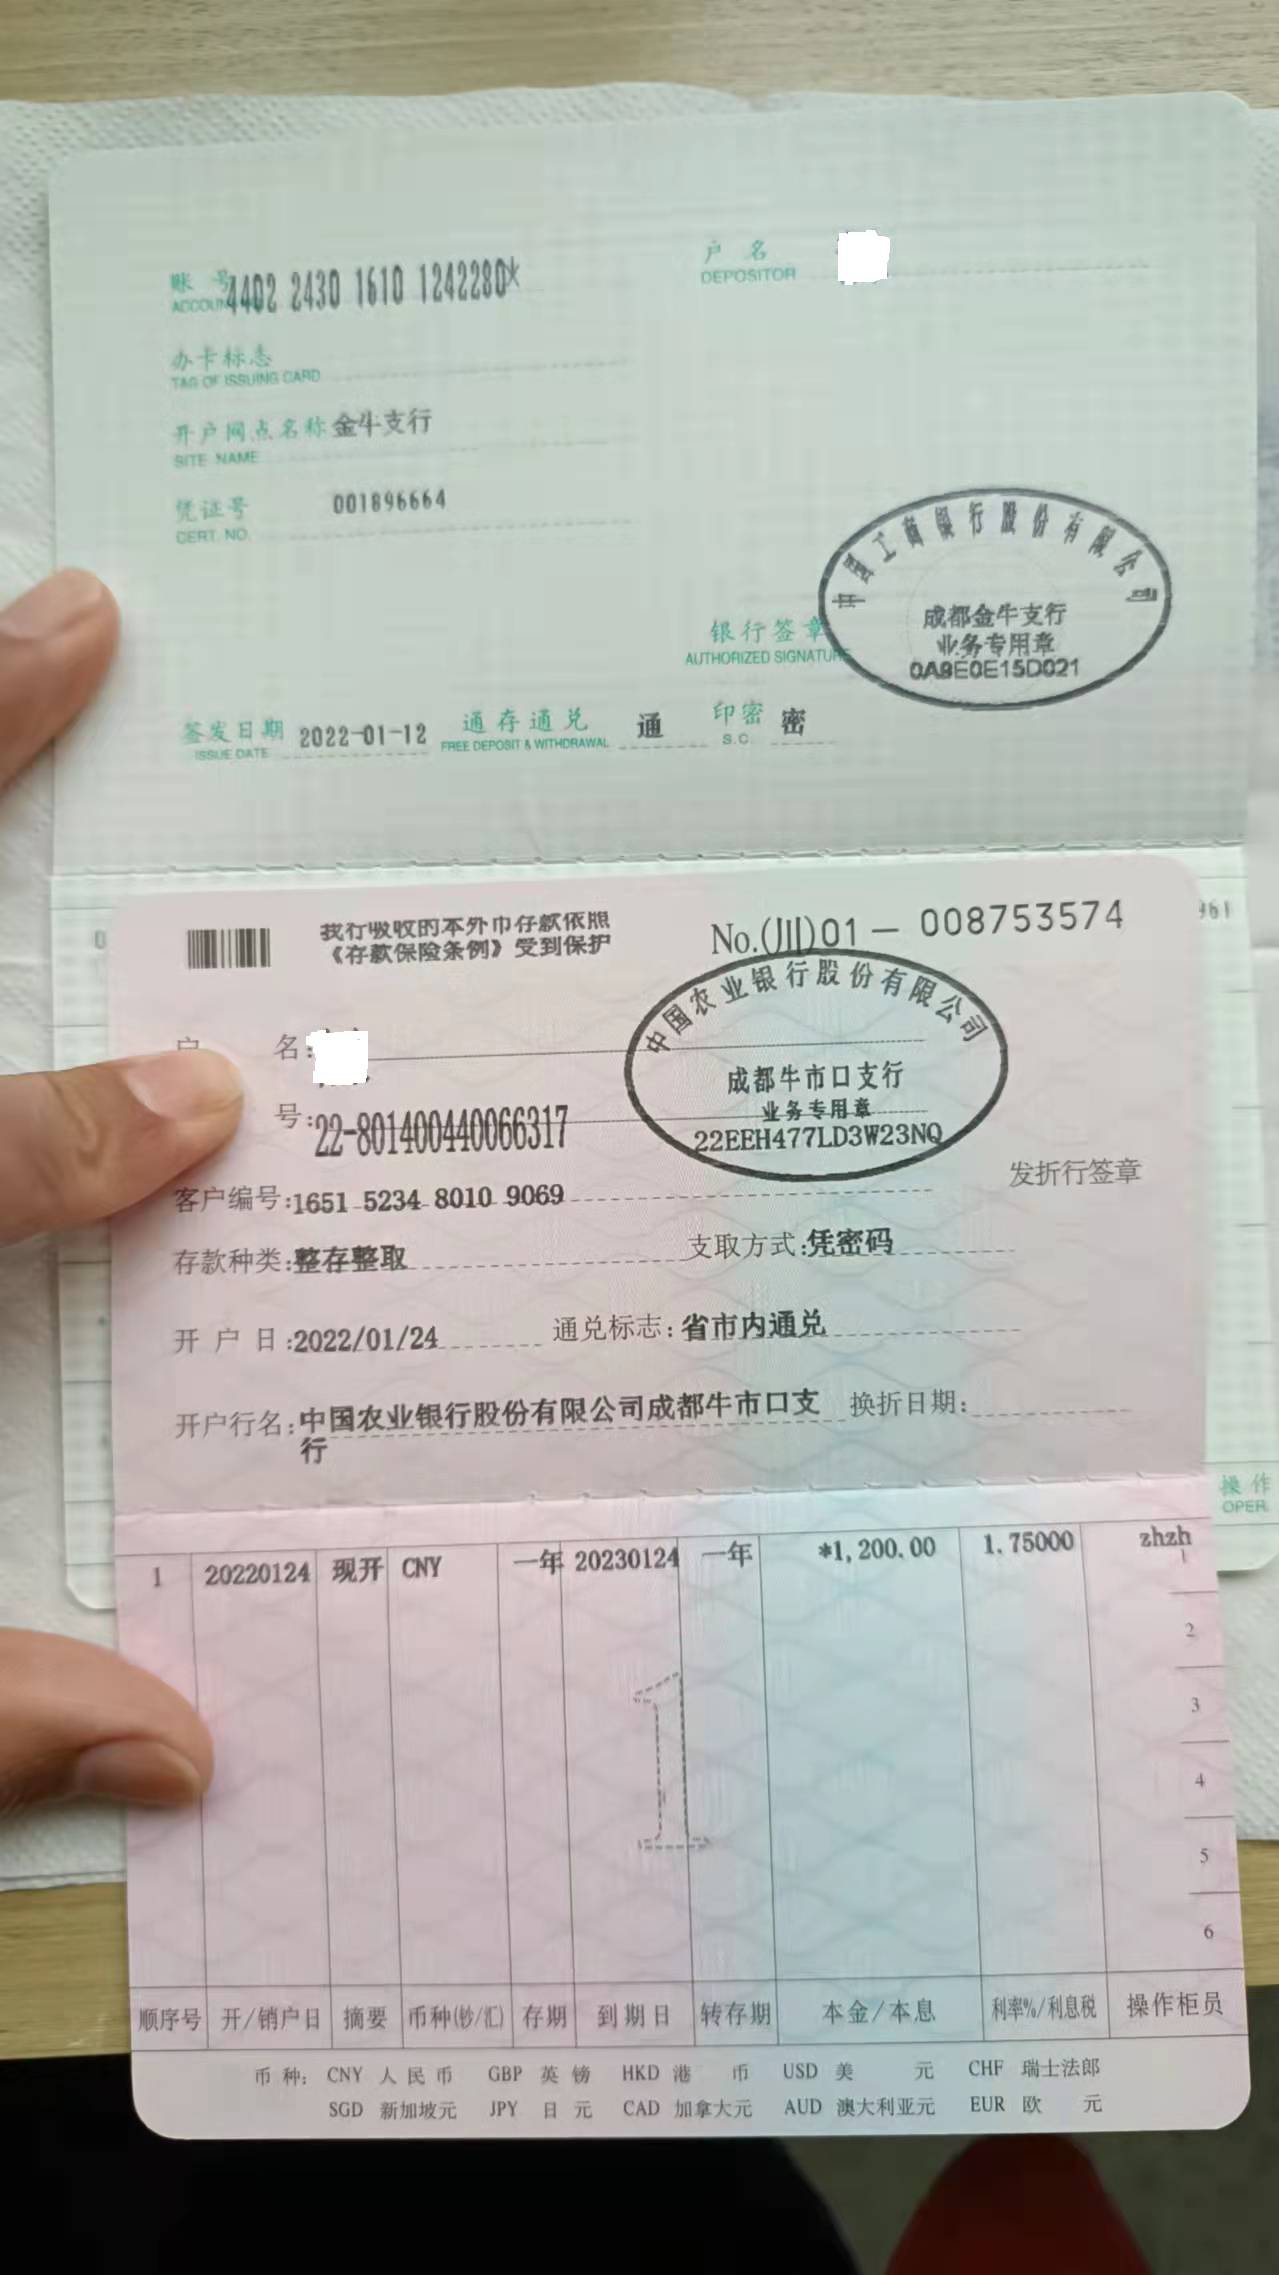 账 号 4402 2430 1610 1242280*
户 名
DEPOSITOR
办卡标志
TAG OF ISSUING CARD
开户网点名称 金牛支行
SITE NAME
凭证号 001896664
CERT. NO.
中国工商银行股份有限公司
成都金牛支行
业务专用章
0A9E0E15D021
银行签章
AUTHORIZED SIGNATURE
签发日期 2022-01-12 通存通兑 通 印密 密
ISSUE DATE FREE DEPOSIT & WITHDRAWAL S.C.
961
我行吸收的本外币存款依照
《存款保险条例》受到保护
No.(川)01 — 008753574
户 名:
号:22-801400440066317
中国农业银行股份有限公司
成都牛市口支行
业务专用章
22EEH477LD3W23NQ
发折行签章
客户编号:1651 5234 8010 9069
存款种类:整存整取 支取方式:凭密码
开 户 日:2022/01/24 通兑标志:省市内通兑
开户行名:中国农业银行股份有限公司成都牛市口支 换折日期:
行
操 作
OPER.
1 20220124 现开 CNY 一年 20230124 一年 *1,200.00 1.75000 zhzh
1
2
3
4
5
6
顺序号 开/销户日 摘要 币种(钞/汇) 存期 到期日 转存期 本金/本息 利率%/利息税 操作柜员
币 种: CNY 人民币 GBP 英镑 HKD 港币 USD 美元 CHF 瑞士法郎
SGD 新加坡元 JPY 日元 CAD 加拿大元 AUD 澳大利亚元 EUR 欧元